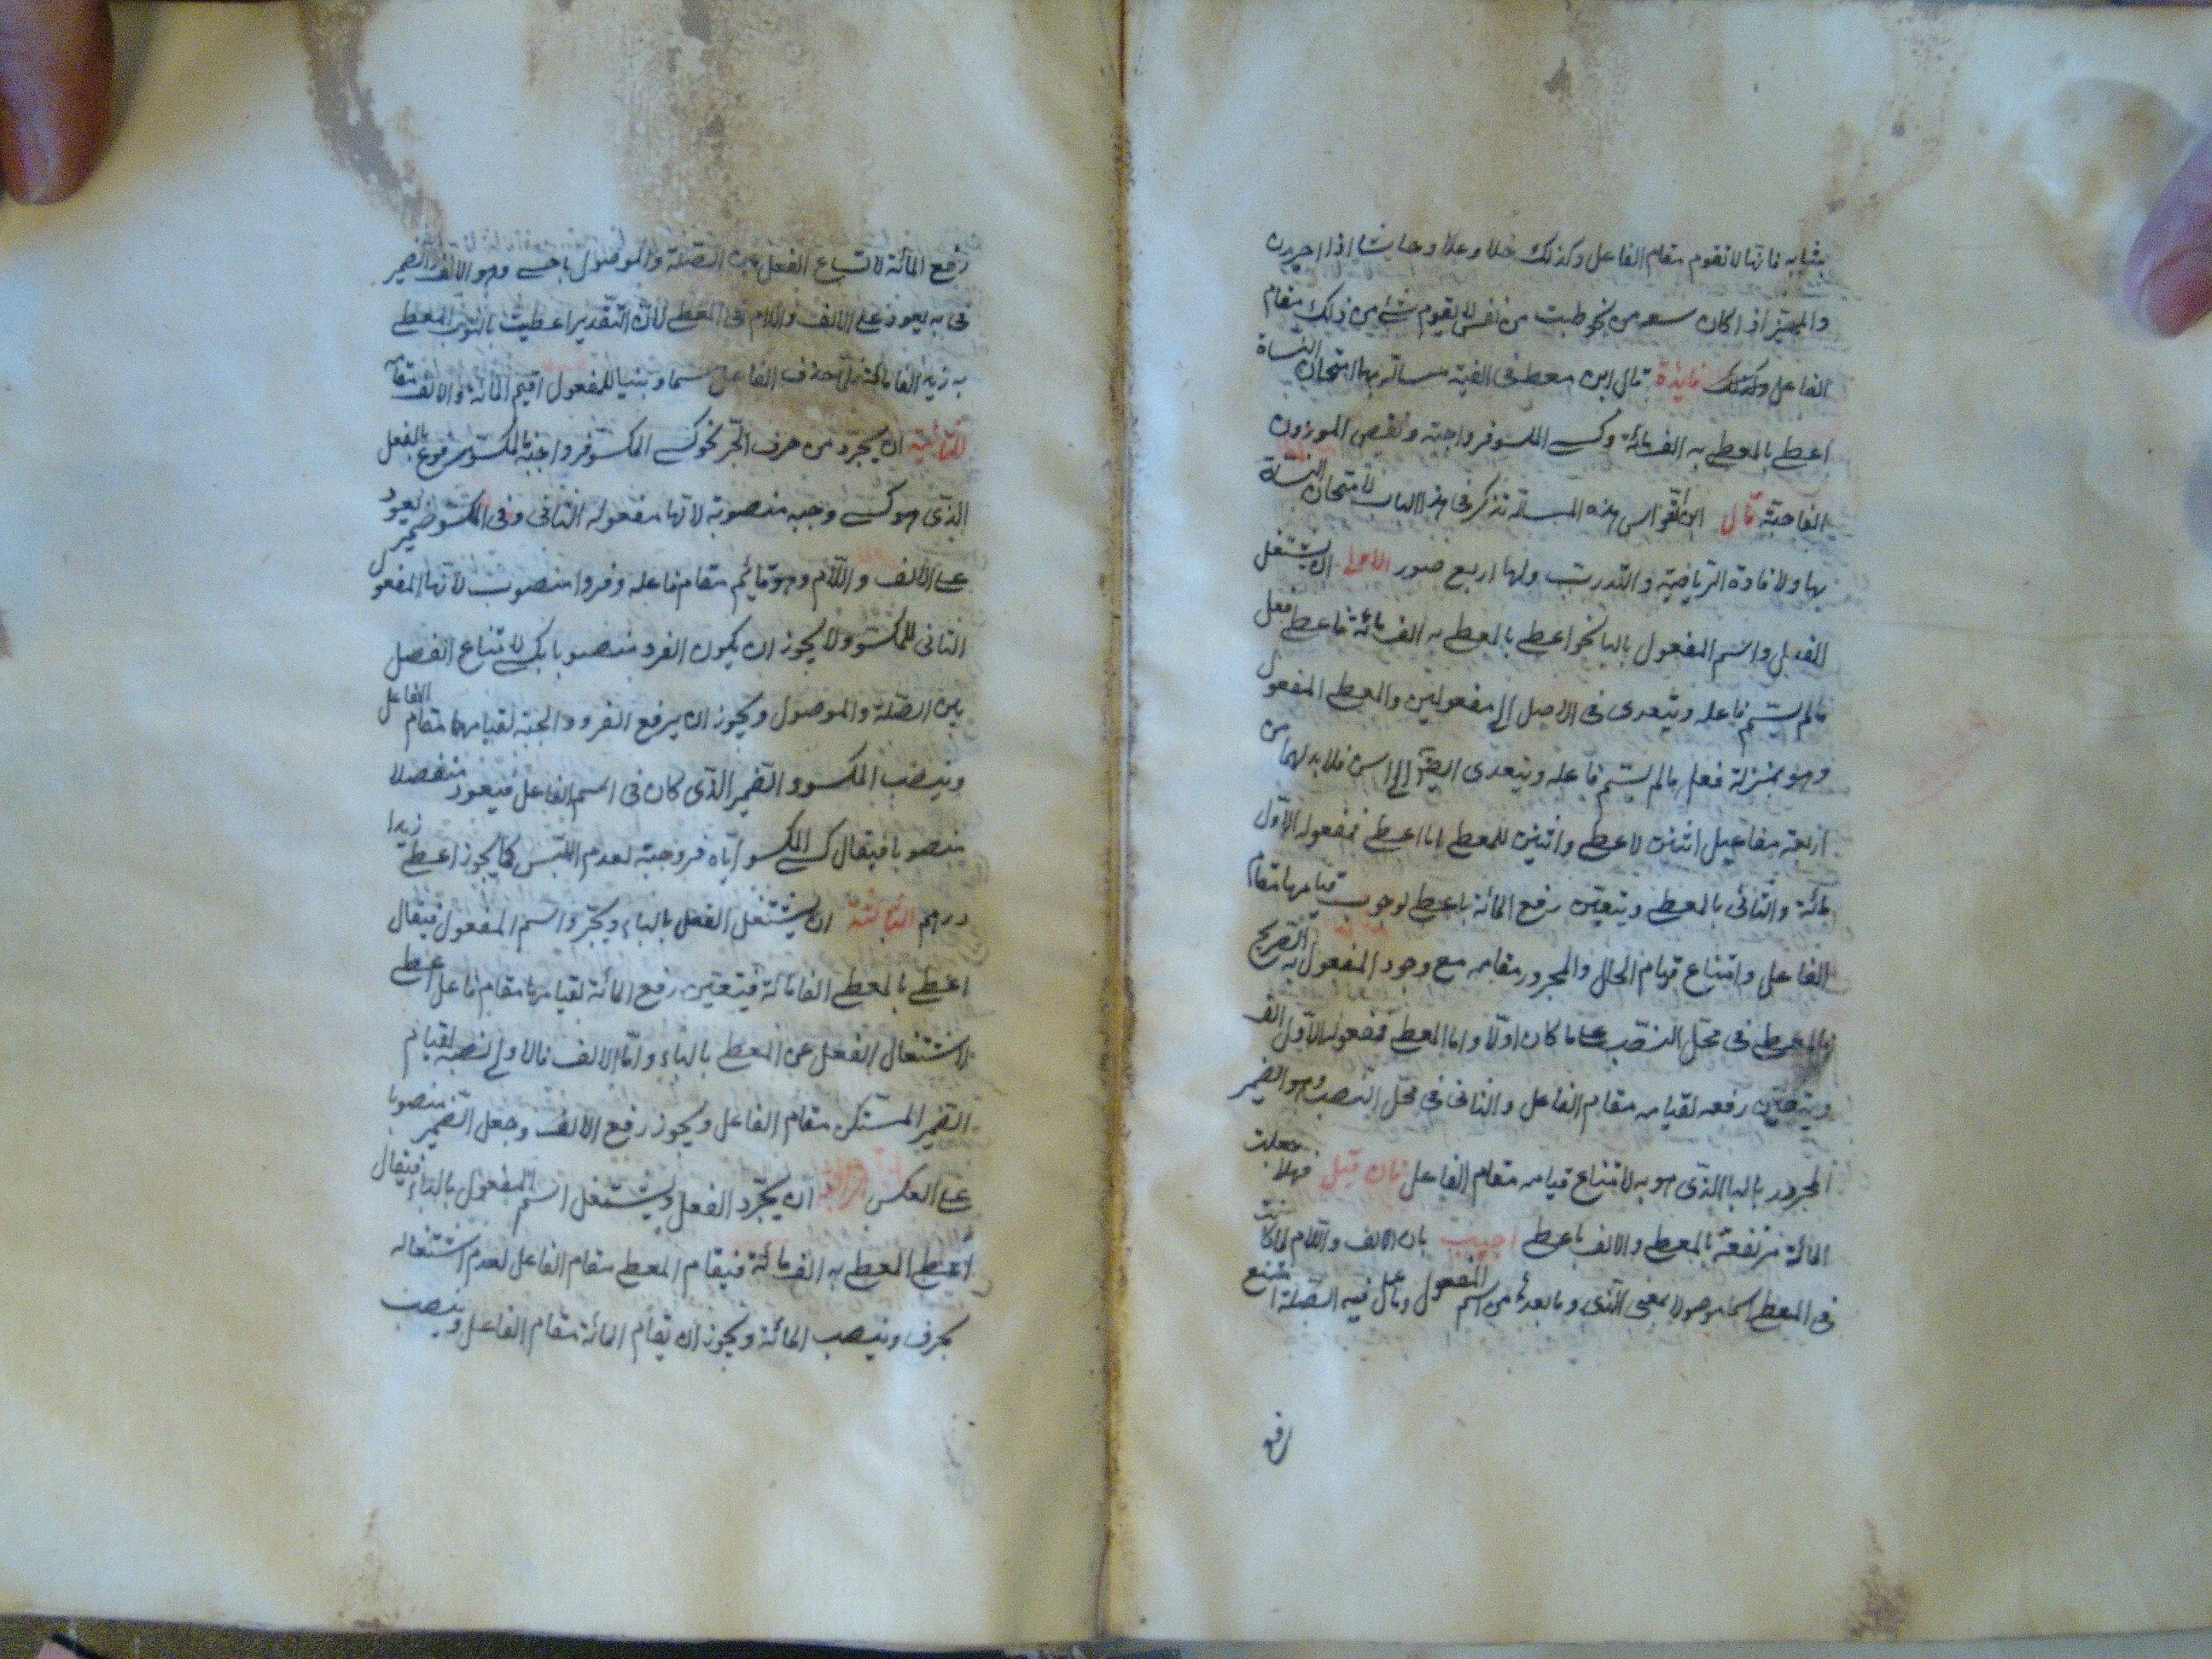 بثبابه فانها لا تقوم مقام الفاعل وكذلك خلا وعدا وحاشا اذا جررن
والمميز اذا كان معه من نحو طبت من نفس لا يقوم شئ من ذلك مقام
الفاعل وكذلك فايدة قال ابن معط فى الفيته مسالة بها امتحان النحاة
اعطى بالمعطى به الف مائة وكسى المكسو فروا جبة ونقص الموزون
الفا حبة قال ابن القواس هذه المسالة تذكر فى هذا الباب لامتحان النحاة
بها ولافادة الرياضية والتدرب ولها اربع صور الاولى ان يشتغل
الفعل واسم المفعول بالبا نحو اعطى بالمعطى به الف مائة فاعطى فعل
مالم يسم فاعله ويتعدى فى الاصل الى مفعولين والمعطى المفعول
وهو بمنزلة فعل مالم يسم فاعله ويتعدى ايضا الى اسمين فلا بد لهما من
اربعة مفاعيل اثنين لاعطى واثنين للمعطى اما اعطى فمفعوله الاول
مائة والثانى بالمعطى ويتعين رفع المائة باعطى لوجوب قيامها مقام
الفاعل وامتناع قيام الجار والمجرور مقامه مع وجود المفعول به الصريح
بالمعطى فى محل النصب على ما كان اولا واما المعطى فمفعوله الاول الف
ويتعين رفعه لقيامه مقام الفاعل والثانى فى محل النصب وهو الضمير
المجرور بالبا الذى هو به لامتناع قيامه مقام الفاعل فان قيل فهلا جعلت
المائة مرتفعة بالمعطى والالف باعطى اجيب بان الالف واللام لما كانت
فى المعطى اسما موصولا بمعنى الذى وما بعدها من اسم المفعول وما عمل فيه الصلة امتنع
رفع
رفع المائة لامتناع الفصل بين الصلة والموصول باجنبى وهو الالف والضمير
فى به يعود على الالف واللام فى المعطى لان التقدير اعطيت بالثوب المعطى
به زيد الفا مائة فلما حذف الفاعل منهما وبنيا للمفعول اقيم المائة والالف مقامه
الثانية ان يجرد من حرف الجر نحو كسى المكسو فروا جبة فالمكسو مرفوع بالفعل
الذى هو كسى وجبة منصوبة لانها مفعوله الثانى وفى المكسو ضمير يعود
على الالف واللام وهو قائم مقام فاعله وفروا منصوب لانها المفعول
الثانى للمكسو ولا يجوز ان يكون الفرو منصوبا بكسى لامتناع الفصل
بين الصلة والموصول ويجوز ان يرفع الفرو والجبة لقيامهما مقام الفاعل
وينصب المكسو والضمير الذى كان فى اسم الفاعل فيعود منفصلا
منصوبا فيقال كسى المكسو اياه فرو جبة لعدم اللبس كما يجوز اعطى زيدا
درهم الثالثة ان يشتغل الفعل بالباء ويجرد اسم المفعول فيقال
اعطى بالمعطى الفا مائة فيتعين رفع المائة لقيامها مقام فاعل اعطى
لاشتغال الفعل عن المعطى بالباء واما الالف فالاولى نصبه لقيام
الضمير المستكن مقام الفاعل ويجوز رفع الالف وجعل الضمير منصوبا
على العكس الرابعة ان يجرد الفعل ويشتغل اسم المفعول بالباء فيقال
اعطى المعطى به الف مائة فيقام المعطى مقام الفاعل لعدم اشتغاله
بحرف وينصب المائة ويجوز ان تقام المائة مقام الفاعل وينصب